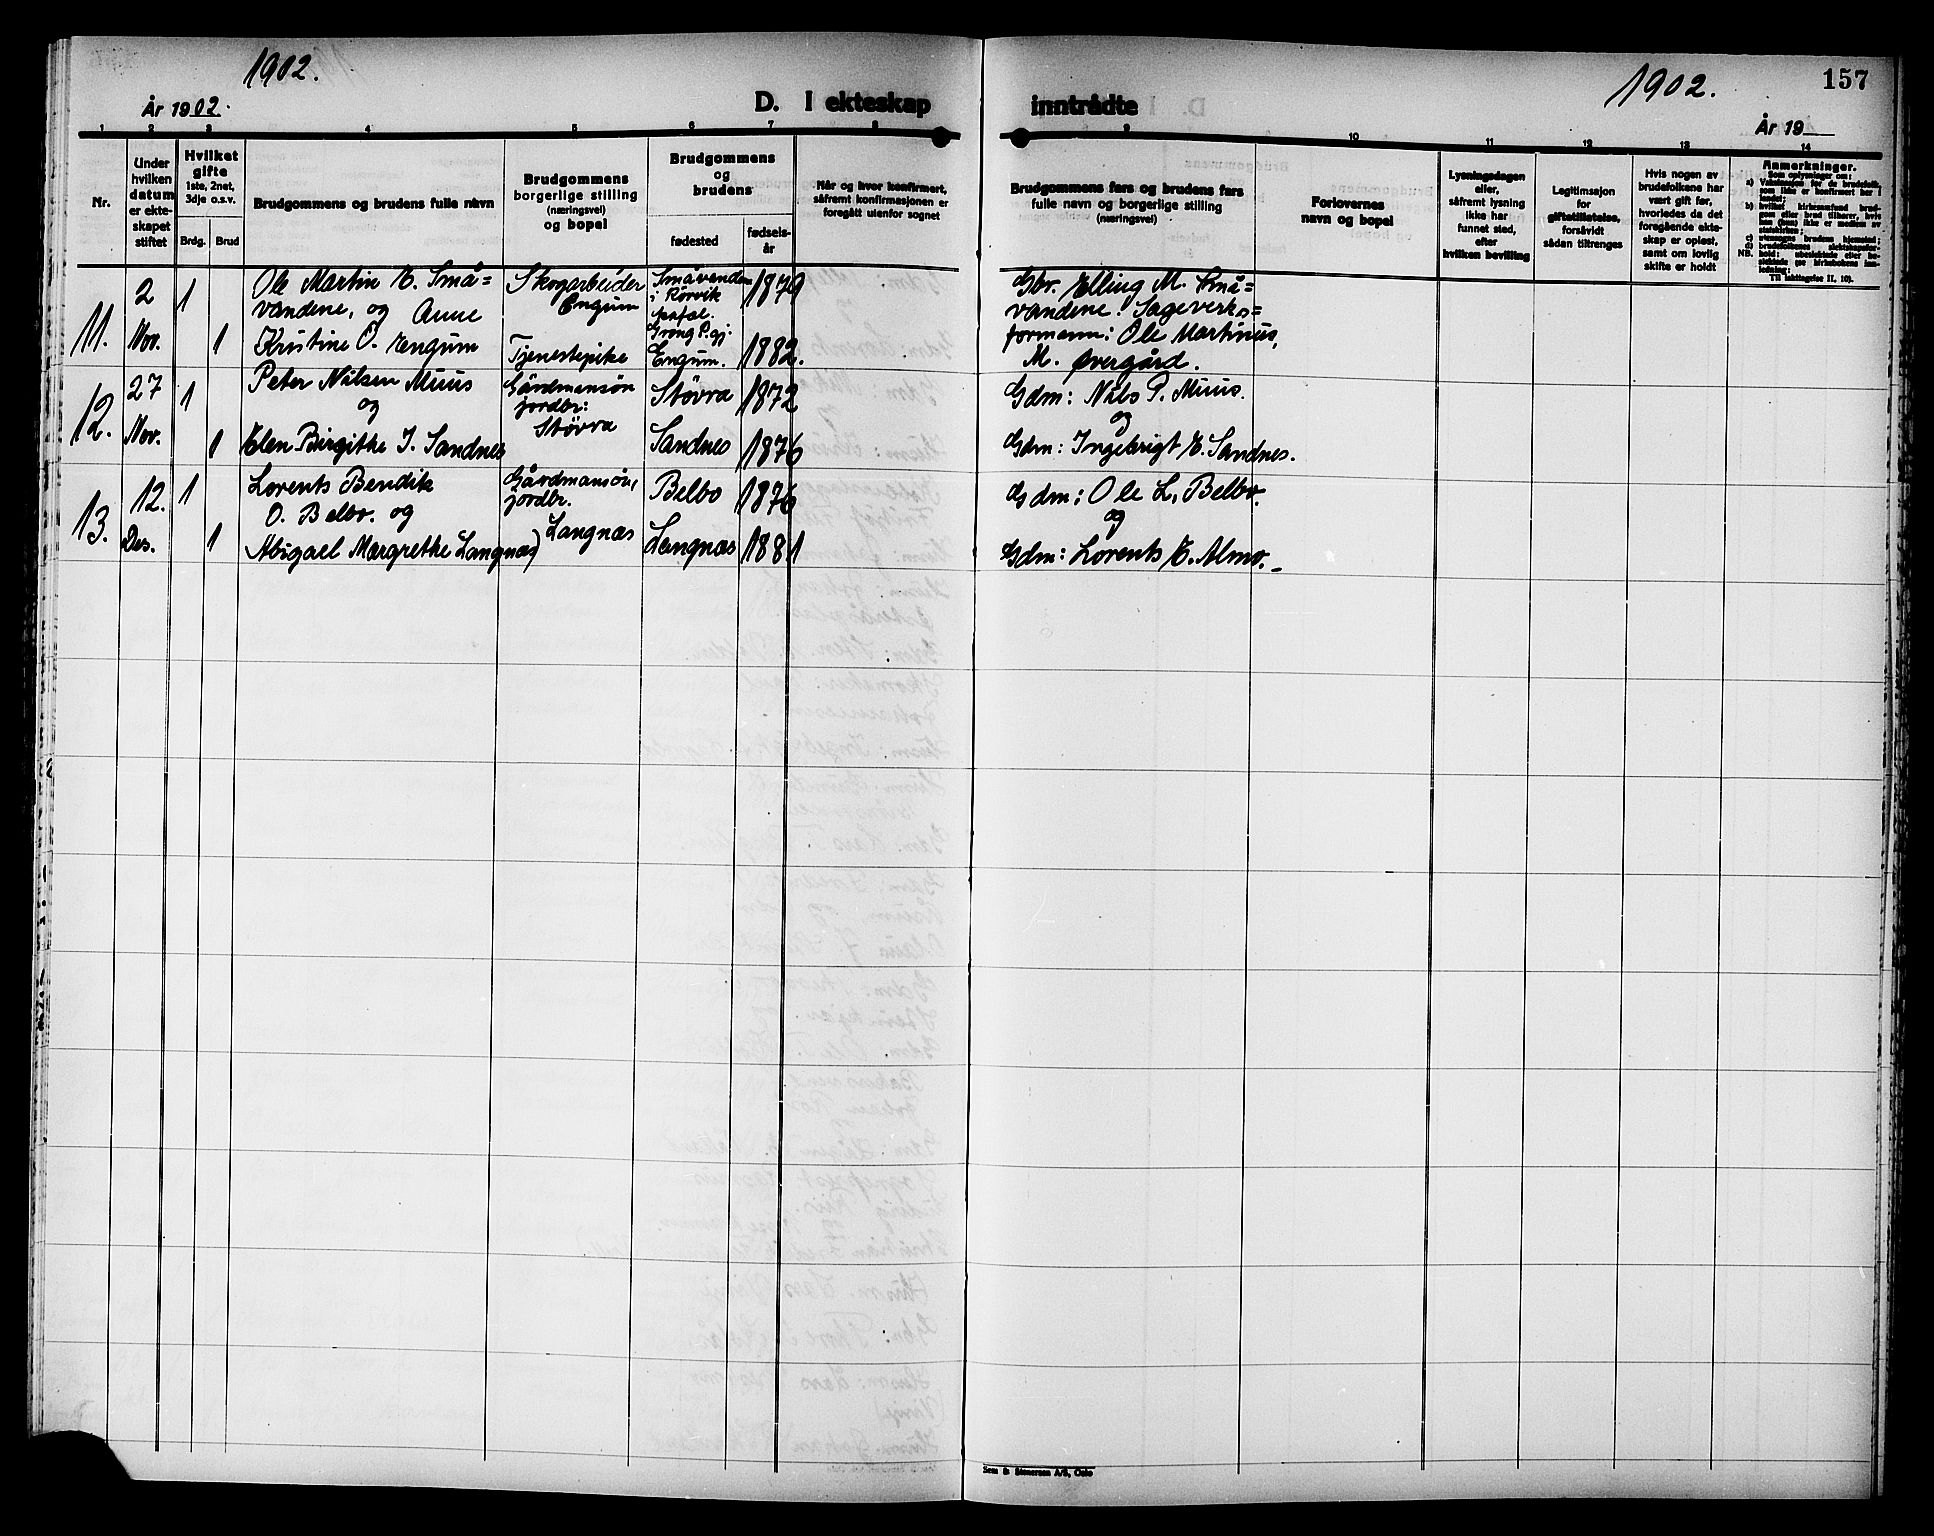 1902.
År 1902.
D. I ekteskap
inntrådte
1902.
157
År 19
1 2 3 4 5 6 7 8
9 10 11 12 13 14
Nr.
Under
hvilken
datum
er ekte-
skapet
stiftet
Hvilket
gifte
1ste, 2net,
3dje o.s.v.
Brdg. Brud
Brudgommens og brudens fulle navn
Brudgommens
borgerlige stilling
(næringsvei)
og bopel
Brudgommens
og
brudens
fødested
fødsels-
år
Når og hvor konfirmert,
såfremt konfirmasjonen er
foregått utenfor sognet
Brudgommens fars og brudens fars
fulle navn og borgerlige stilling
(næringsvei)
Forlovernes
navn og bopel
Lysningsdagen
eller,
såfremt lysning
ikke har
funnet sted,
efter
hvilken bevilling
Legitimasjon
for
giftetillatelse,
forsåvidt
sådan tiltrenges
Hvis nogen av
brudefolkene har
vært gift før,
hvorledes da det
foregående ekte-
skap er opløst,
samt om lovlig
skifte er holdt
Anmerkninger.
Som oplysninger om:
11.
2
Nov.
1
1
Ole Martin E. Små-
vandene, og Anne
Kristine O. Engum
Skogarbeider
Engum
Tjenestepike
Småvandene
i Rørvik
Grong P.gj.
Engum.
1879
1882.
Gbr. Elling M. Små-
vandene. Sageverks-
formann: Ole Martinus,
M. Øvergård.
12.
27
Nov.
1
1
Peter Nilsen Muus
og
Elen Birgithe I. Sandnes
Gårdmansøn
jordbr:
Støvra
Støvra
Sandnes
1872
1876
Gdm: Nils P. Muus.
og
Gdm: Ingebrigt E. Sandnes.
13.
12.
Des.
1
1
Lorents Bendik
O. Belbo. og
Abigael Margrethe Langnæs)
Gårdmansøn,
jordbr.
Langnæs
Belbo
Langnæs
1876
1881
Gdm: Ole L. Belbo.
og
Gdm: Lorents E. Almo.-
Sem & Stenersen A/S, Oslo